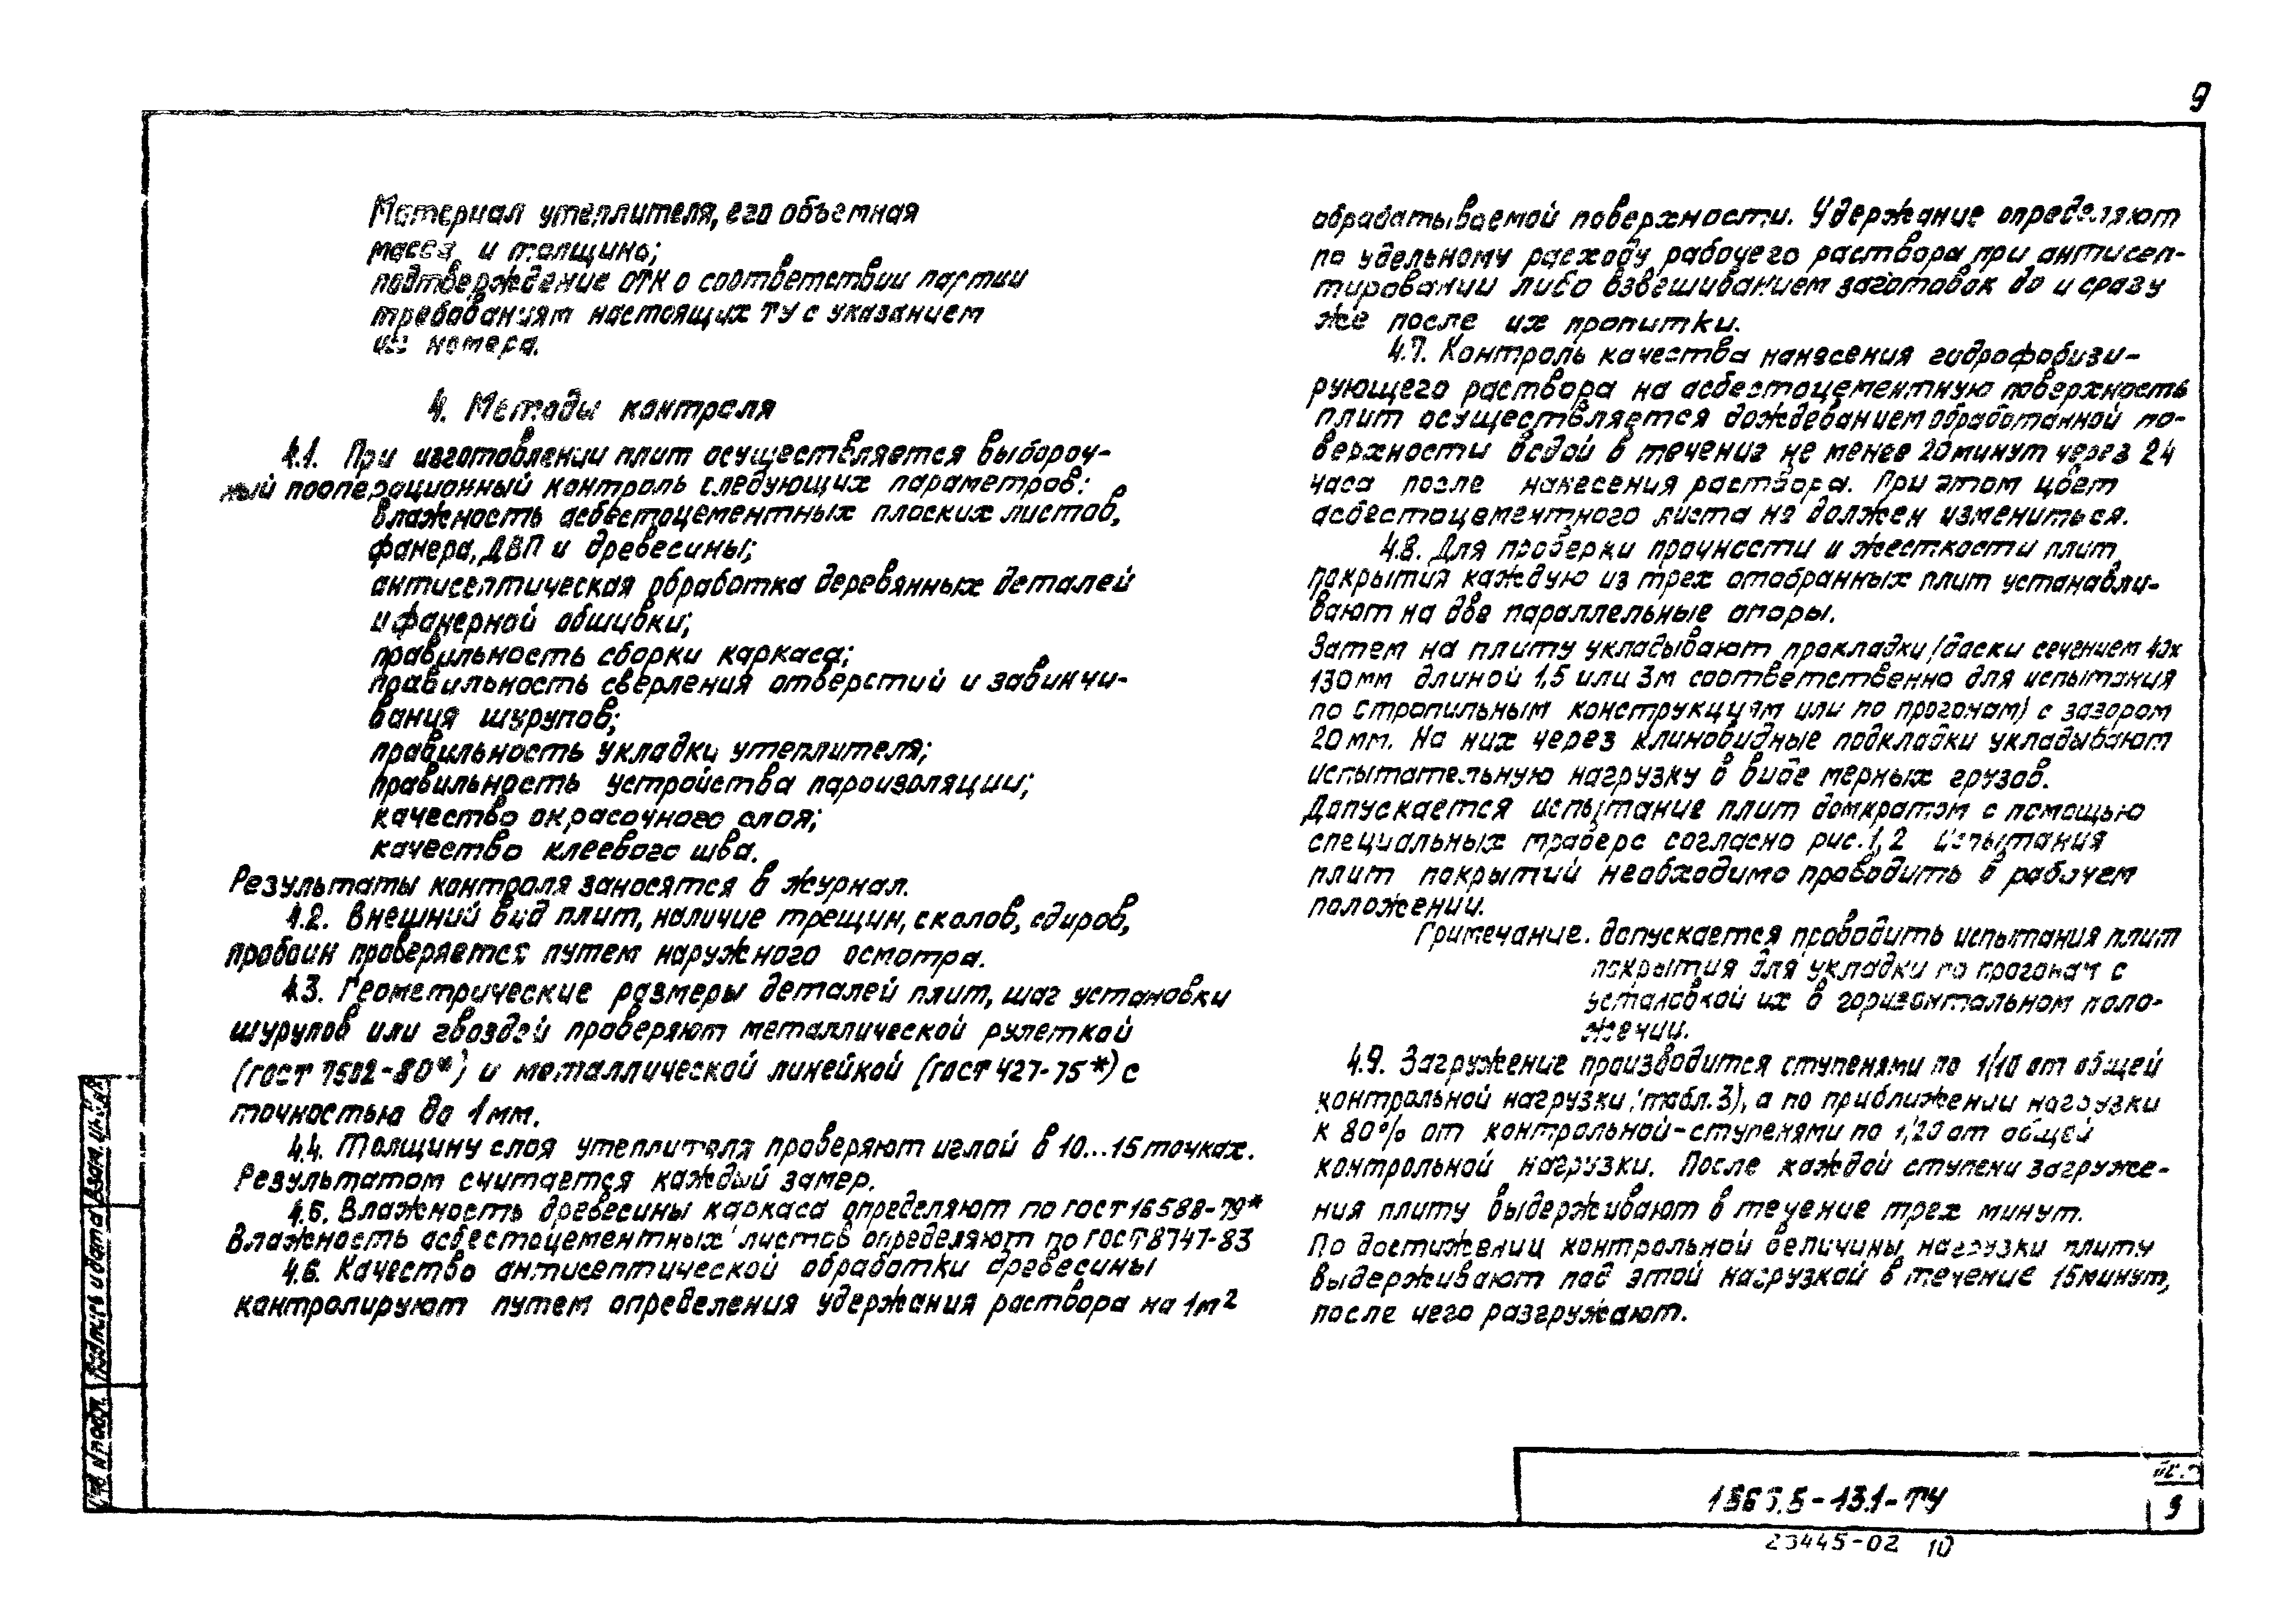 9
Материал утеплителя, его объемная
масса и толщина;
подтверждение ОТК о соответствии партии
требованиям настоящих ТУ с указанием
их номера.
4. Методы контроля
4.1. При изготовлении плит осуществляется выбороч-
ный пооперационный контроль следующих параметров:
влажность асбестоцементных плоских листов,
фанера, ДВП и древесины;
антисептическая обработка деревянных деталей
и фанерной обшивки;
правильность сборки каркаса;
правильность сверления отверстий и завинчи-
вания шурупов;
правильность укладки утеплителя;
правильность устройства пароизоляции;
качество окрасочного слоя;
качество клеевого шва.
Результаты контроля заносятся в журнал.
4.2. Внешний вид плит, наличие трещин, сколов, сдиров,
пробоин проверяется путем наружного осмотра.
4.3. Геометрические размеры деталей плит, шаг установки
шурупов или гвоздей проверяют металлической рулеткой
(ГОСТ 7502-80*) и металлической линейкой (ГОСТ 427-75*) с
точностью до 1мм.
4.4. Толщину слоя утеплителя проверяют иглой в 10...15 точках.
Результатом считается каждый замер.
4.5. Влажность древесины каркаса определяют по ГОСТ 16588-79*
Влажность асбестоцементных листов определяют по ГОСТ 8747-83
4.6. Качество антисептической обработки древесины
контролируют путем определения удержания раствора на 1м²
обрабатываемой поверхности. Удержание определяют
по удельному расходу рабочего раствора при антисеп-
тировании либо взвешиванием заготовок до и сразу
же после их пропитки.
4.7. Контроль качества нанесения гидрофобизи-
рующего раствора на асбестоцементную поверхность
плит осуществляется дождеванием обработанной по-
верхности водой в течение не менее 20 минут через 24
часа после нанесения раствора. При этом цвет
асбестоцементного листа не должен измениться.
4.8. Для проверки прочности и жесткости плит
покрытия каждую из трех отобранных плит устанавли-
вают на две параллельные опоры.
Затем на плиту укладывают прокладки (доски сечением 40х
130мм длиной 1,5 или 3м соответственно для испытания
по стропильным конструкциям или по прогонам) с зазором
20 мм. На них через клиновидные подкладки укладывают
испытательную нагрузку в виде мерных грузов.
Допускается испытание плит домкратом с помощью
специальных траверс согласно рис. 1, 2 Испытания
плит покрытий необходимо проводить в рабочем
положении.
Примечание. Допускается проводить испытания плит
покрытия для укладки по прогонам с
установкой их в горизонтальном поло-
жении.
4.9. Загружение производится ступенями по 1/10 от общей
контрольной нагрузки (табл. 3), а по приближении нагрузки
к 80% от контрольной-ступенями по 1/20 от общей
контрольной нагрузки. После каждой ступени загруже-
ния плиту выдерживают в течение трех минут.
По достижении контрольной величины нагрузки плиту
выдерживают под этой нагрузкой в течение 15 минут,
после чего разгружают.
Инв. № подл. Подпись и дата Взам. инв. №
-13.1-ТУ
9
23445-02 10